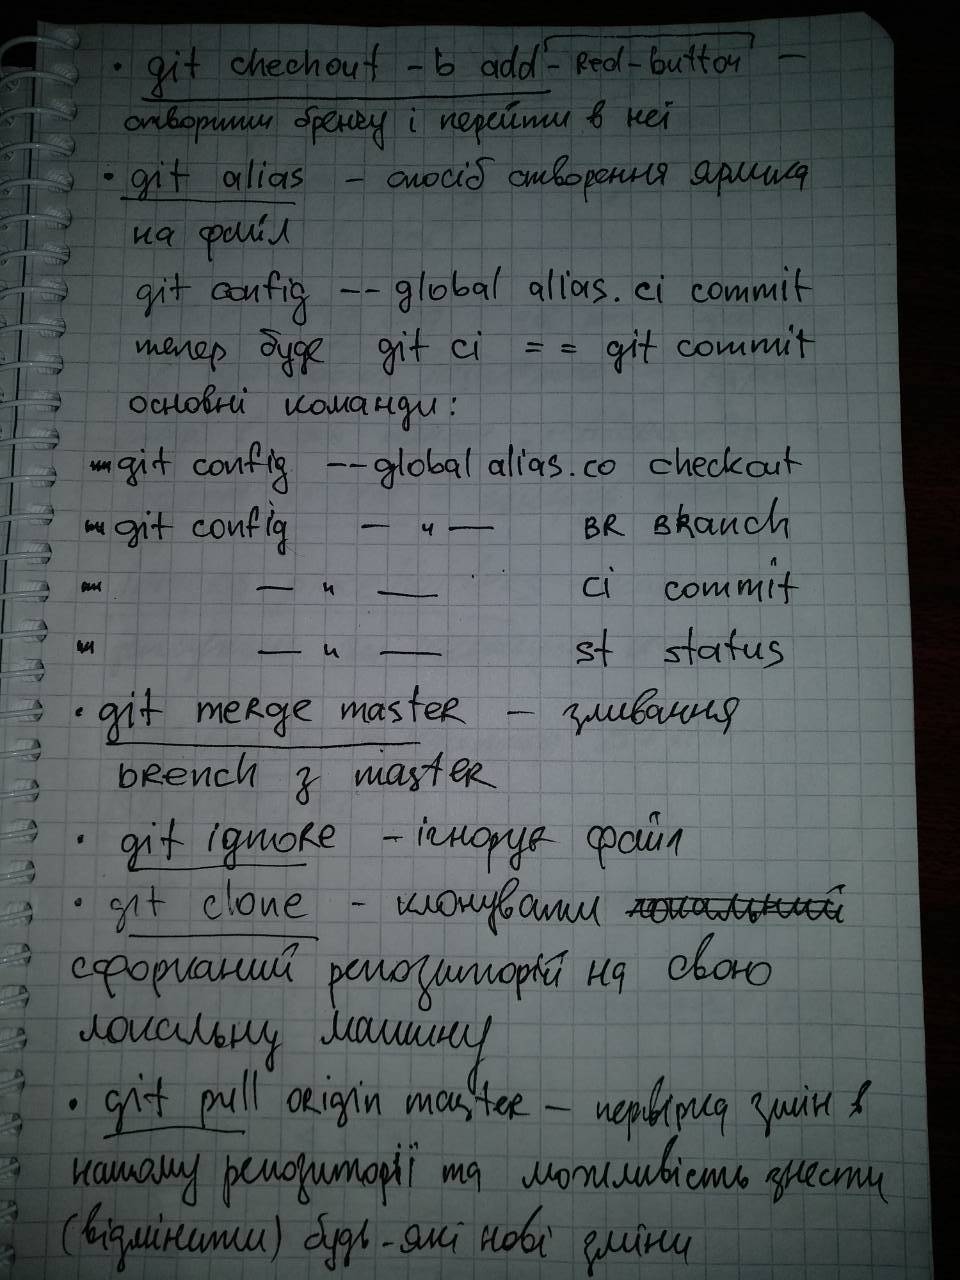 · git chechout -b add-Red-button —
створити бренч і перейти в неї
· git alias - спосіб створення ярлика
на файл
git config --global alias.ci commit
тепер буде git ci == git commit
основні команди:
git config --global alias.co checkout
git config — " — BR BRanch
— " — ci commit
— " — st status
· git merge master - зливання
bRench з master
· git ignore - ігнорує файл
· git clone - клонувати локальний
сфорканий репозиторій на свою
локальну машину
· git pull origin master - первірка змін в
нашому репозиторії та можливість знести
(відмінити) будь-які нові зміни